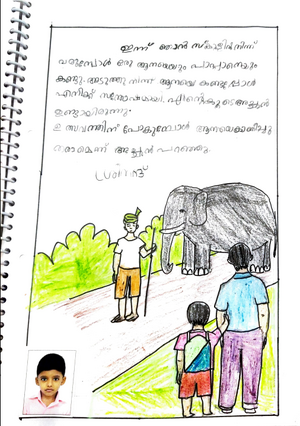 ഇന്ന് ഞാൻ സ്കൂളിൽനിന്ന്
വരുമ്പോൾ ഒരു ആനയെയും പാപ്പാനെയും
കണ്ടു. അടുത്തു നിന്ന് ആനയെ കണ്ടപ്പോൾ
എനിക്ക് സന്തോഷമായി. എന്റെകൂടെ അച്ഛൻ
ഉണ്ടായിരുന്നു.
ഉത്സവത്തിന് പോകുമ്പോൾ ആനയെ
തരാമെന്ന് അച്ഛൻ പറഞ്ഞു.